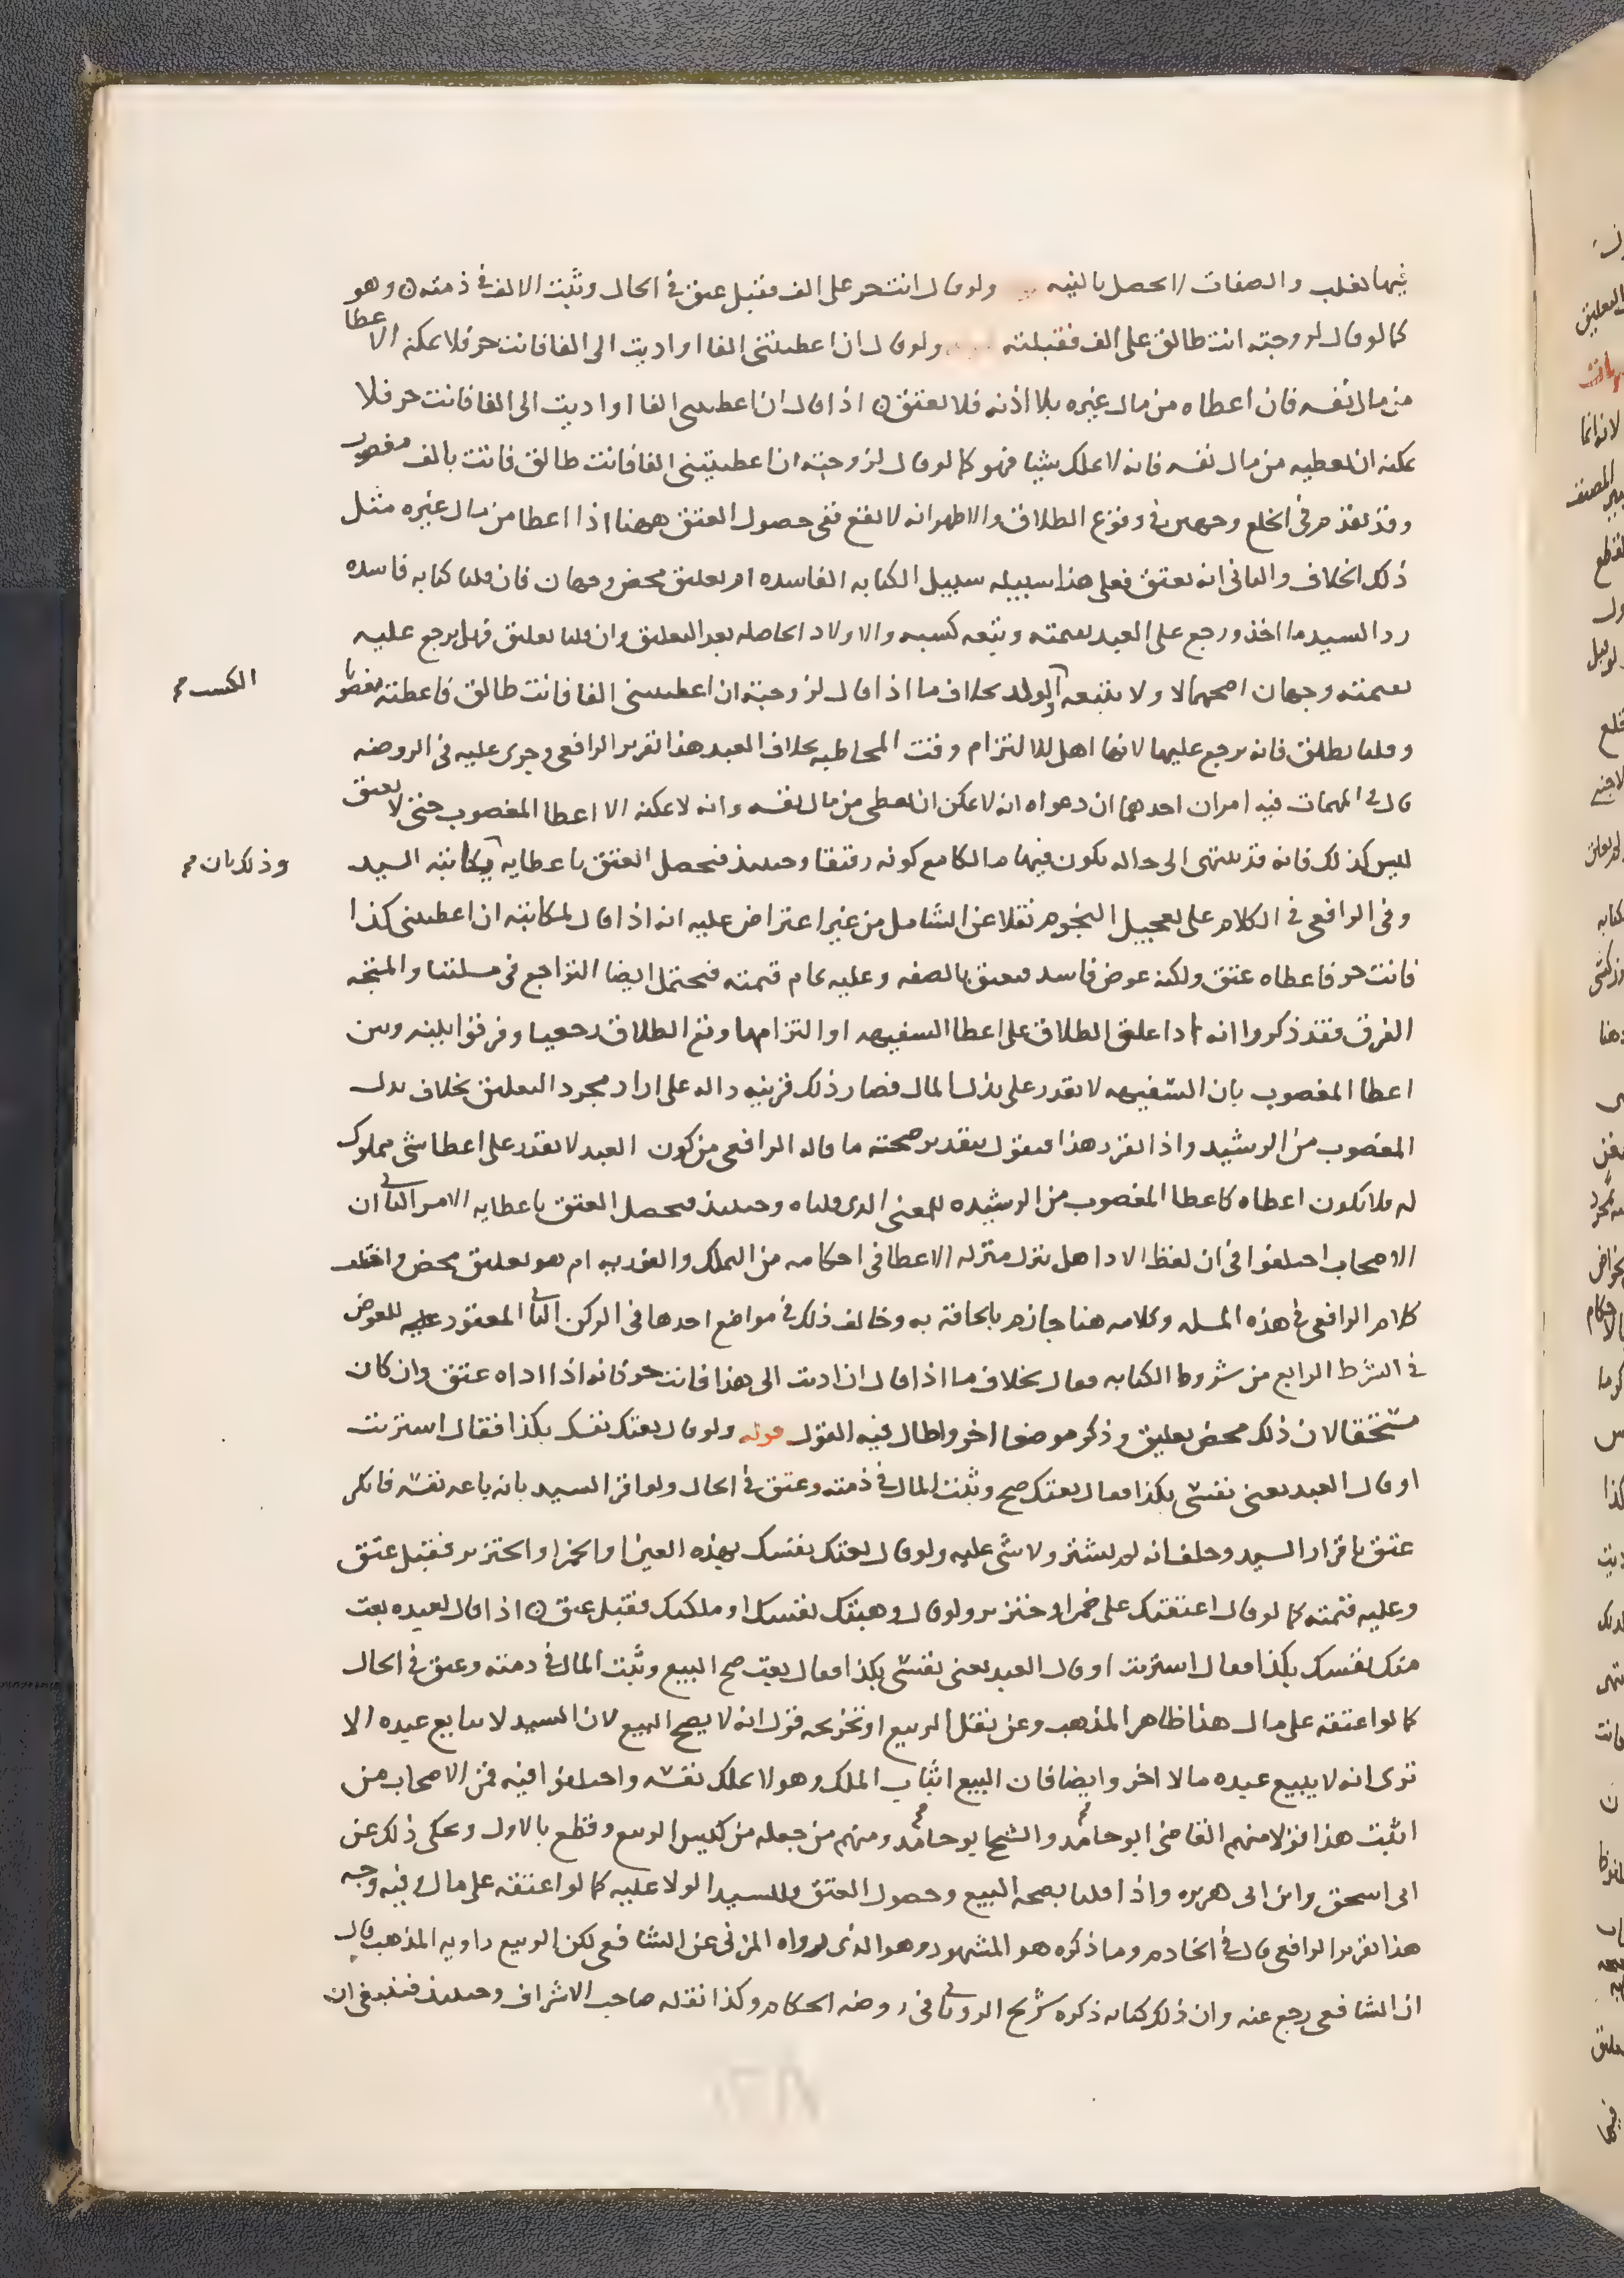 فيها لغلب والصفات لا تحصل بالنيه ولو قال انت حر على الف فقبل عتق في الحال وثبت الالف في ذمته ن وهو
كما لو قال لزوجته انت طالق على الف فقبلته ولو قال ان اعطيتني الفا او اديت الى الفا فانت حر فلا يمكنه الاعطا
من مال نفسه فان اعطاه من مال غيره بلا اذنه فلا يعتق ن اذا قال ان اعطيتني الفا او اديت الى الفا فانت حر فلا
يمكنه ان يعطيه من مال نفسه فانه لا يملك شيا فهو كما لو قال لزوجته ان اعطيتيني الفا فانت طالق فاتت بالف مغصوب
وقد تقدم في الخلع وجهين في وقوع الطلاق والاظهر انه لا يقع ففي حصول العتق ههنا اذا اعطا من مال غيره مثل
ذلك الخلاف والثاني انه يعتق فعلى هذا سبيله سبيل الكتابه الفاسده او تعليق محض وجهان فان قلنا كتابه فاسده
رد السيد ما اخذ ورجع على العبد بقيمته ويتبعه كسبه والاولاد الحاصله بعد التعليق وان قلنا تعليق فهل يرجع عليه
بقيمته وجهان اصحهما لا ولا يتبعه الكسب والولد بخلاف ما اذا قال لزوجته ان اعطيتني الفا فانت طالق فاعطته مغصوبا
وقلنا تطلق فانه يرجع عليها لانها اهل للالتزام وقت المخاطبه بخلاف العبد هذا تقرير الرافعي وجرى عليه في الروضه
قال في المهمات فيه امران احدهما ان دعواه انه لا يمكن ان يعطى من مال نفسه وانه لا يمكنه الا اعطا المغصوب حتى لا يعتق
ليس كذلك فانه قد ينتهى الى حاله يكون فيها مالكا مع كونه رقيقا وحينئذ فيحصل العتق باعطايه وذلك بان يكاتبه السيد
وفي الرافعي في الكلام على تعجيل النجوم نقلا عن الشامل من غير اعتراض عليه انه اذا قال لمكاتبه ان اعطيتني كذا
فانت حر فاعطاه عتق ولكنه عوض فاسد فيعتق بالصفه وعليه تمام قيمته فيحتمل ايضا التراجع في مسلتنا والمتجه
الفرق فقد ذكروا انه اذا علق الطلاق على اعطا السفيهه او التزامها وقع الطلاق رجعيا وفرقوا بينه وبين
اعطا المغصوب بان السفيهه لا تقدر على بذل المال فصار ذلك قرينه داله على اراد مجرد التعليق بخلاف بدل
المغصوب من الرشيد واذا تقرر هذا فيقول بتقدير صحته ما قاله الرافعي من كون العبد لا يقدر على اعطا شي مملوك
له فلا يكون اعطاه كاعطا المغصوب من الرشيده للمعنى الذي قلناه وحينئذ فيحصل العتق باعطايه الامر الثاني ان
الاصحاب اختلفوا في ان لفظ الادا هل ينزل منزله الاعطا في احكامه من التملك والفوريه ام هو تعليق محض واختلف
كلام الرافعي في هذه المسله وكلامه هنا جازم بالحاقه به وخالف ذلك في مواضع احدها في الركن الثاني المعقود عليه للعوض
في الشرط الرابع من شروط الكتابه فقال بخلاف ما اذا قال ان اديت الى هذا فانت حر فانه اذا اداه عتق وان كان
مستحقا لان ذلك محض تعليق وذكر موضعا اخر واطال فيه القول قوله ولو قال بعتك نفسك بكذا فقال اشتريت
او قال العبد بعني نفسي بكذا فقال بعتك صح وثبت المال في ذمته وعتق في الحال ولو اقر السيد بانه باعه نفسه فانكر
عتق باقرار السيد وحلف انه لم يشتر ولا شي عليه ولو قال بعتك نفسك بهذه العين او الخمر او الخنزير فقبل عتق
وعليه قيمته كما لو قال اعتقتك على خمر او خنزير ولو قال وهبتك نفسك او ملكتك فقبل عتق ن اذا قال لعبده بعت
منك نفسك بكذا فقال اشتريت او قال العبد بعني نفسي بكذا فقال بعت صح البيع وثبت المال في ذمته وعتق في الحال
كما لو اعتقه على مال هذا ظاهر المذهب وعن نقل الربيع او تخريجه قول انه لا يصح البيع لان السيد لا يبايع عبده الا
ترى انه لا يبيع عبده مالا اخر وايضا فان البيع اثبات الملك وهو لا يملك نفسه واختلفوا فيه فمن الاصحاب من
اثبت هذا قولا منهم القاضي ابو حامد والشيخ ابو حامد ومنهم من جعله من كيس الربيع وقطع بالاول ويحكى ذلك عن
ابي اسحق وابن ابي هريره واذا قلنا بصحه البيع وحصول العتق فللسيد الولا عليه كما لو اعتقه على مال وفيه وجه
هذا تقرير الرافعي قال في الخادم وما ذكره هو المشهور وهو الذي رواه المزني عن الشافعي لكن الربيع راويه المذهب قال
ان الشافعي رجع عنه وان ذلك كتابه ذكره شريح الروياني في روضه الحكام وكذا نقله صاحب الاشراف وحينئذ فينبغي ان